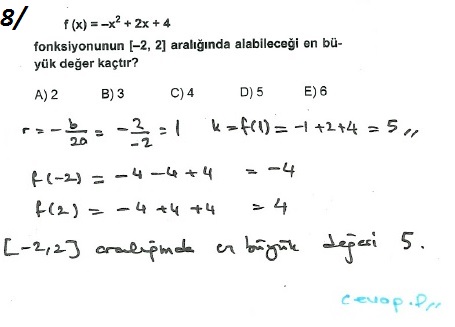 8/
f (x) = –x² + 2x + 4
fonksiyonunun [–2, 2] aralığında alabileceği en bü-
yük değer kaçtır?
A) 2 B) 3 C) 4 D) 5 E) 6
r = -b/2a = -2/-2 = 1 k = f(1) = -1 +2 +4 = 5 //
f(-2) = -4 -4 +4 = -4
f(2) = -4 +4 +4 = 4
[-2,2] aralığında en büyük değeri 5.
cevap.D//